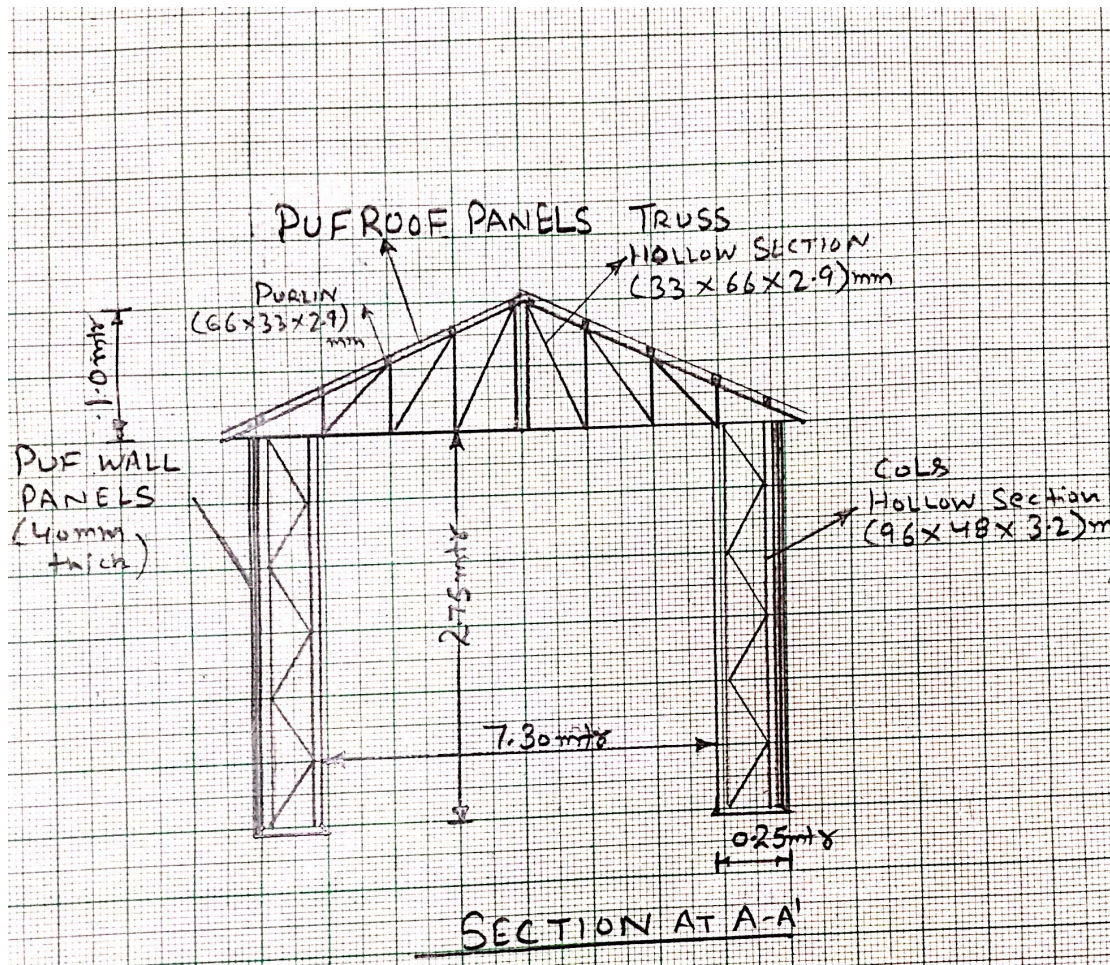 PUF ROOF PANELS
TRUSS
HOLLOW SECTION
(33 x 66 x 2.9)mm
PURLIN
(66x33x2.9)
mm
1.0mtr
PUF WALL
PANELS
(40mm
thick)
COLS
HOLLOW Section
(96 x 48 x 3.2)m
2.75mtr
7.30mtr
0.25mtr
SECTION AT A-A'